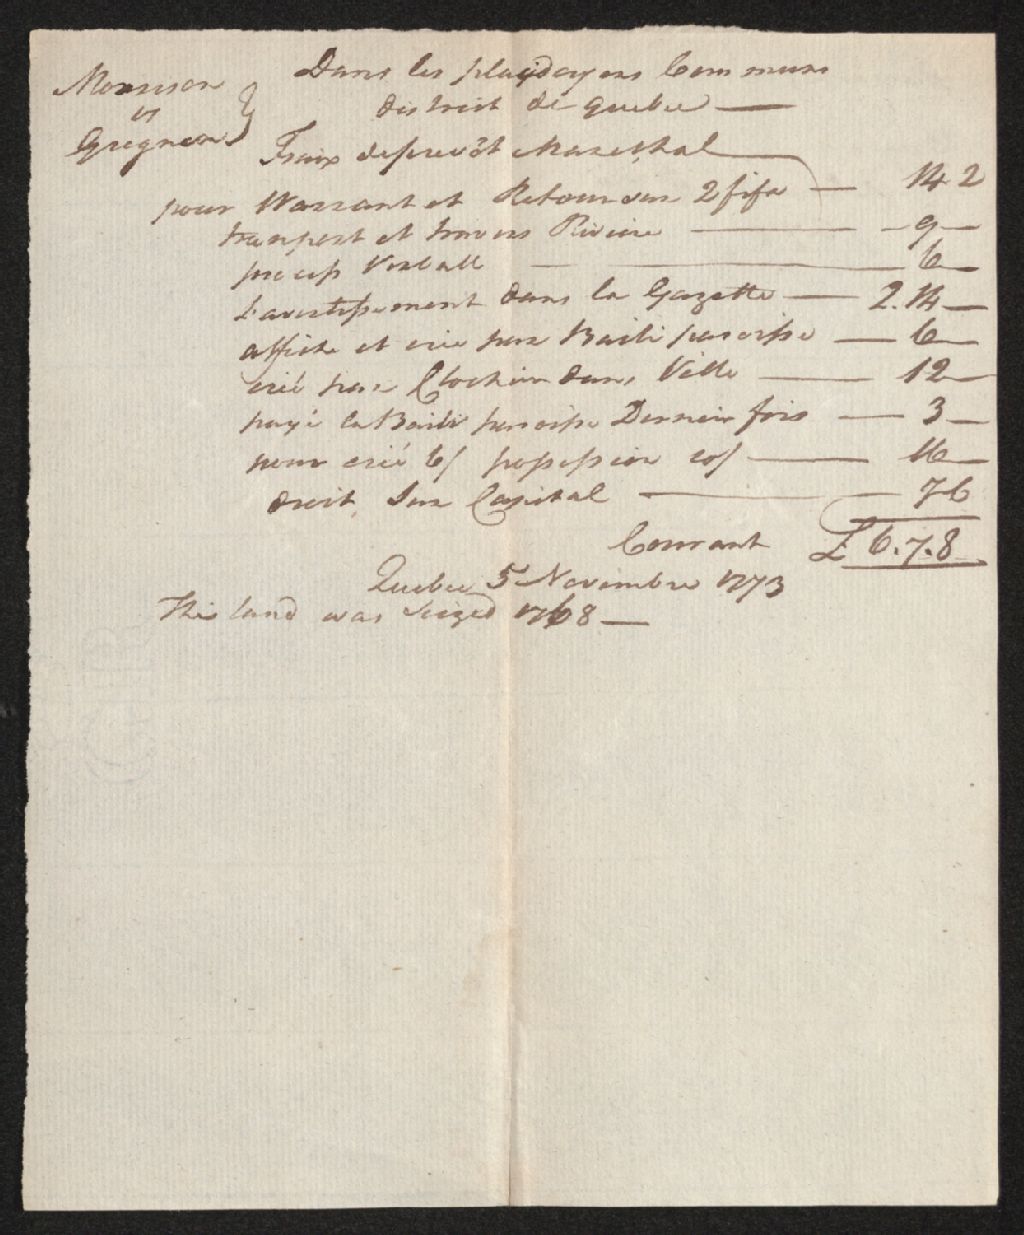 Morrison
vs
Gregnon }
Dans les playdoyens Commun
district de quebec —
Fraix de prevôt Mareshal
pour Warrant et Retour sur 2 fifa — 14 2
transport et travers Riviere — 9 —
proces Verball — 6 —
L'avertissement dans la Gazette — 2.14 —
affiche et crie par Baili paroisse — 6 —
crié par Clochin dans Ville — 12 —
payé le Baili paroisse Derniere fois — 3 —
pour crié 6/ possession 10/ — 16 —
droit Sur Capital — 7 6
Courant £ 6.7.8
Quebec 5 Novembre 1773
This land was Seized 1768 —